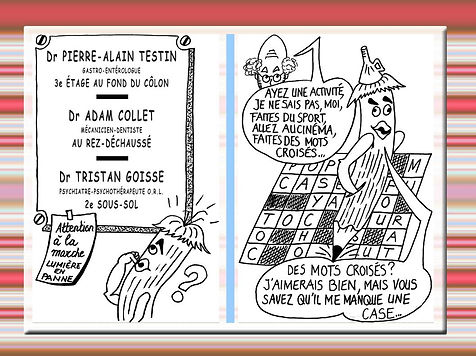 Dr PIERRE-ALAIN TESTIN
GASTRO-ENTÉROLOGUE
3e ÉTAGE AU FOND DU CÔLON
Dr ADAM COLLET
MÉCANICIEN-DENTISTE
AU REZ-DÉCHAUSSÉ
Dr TRISTAN GOISSE
PSYCHIATRE-PSYCHOTHÉRAPEUTE O.R.L.
2e SOUS-SOL
Attention
à la
marche
LUMIÈRE
EN
PANNE
?
AYEZ UNE ACTIVITÉ,
JE NE SAIS PAS, MOI,
FAITES DU SPORT,
ALLEZ AU CINÉMA,
FAITES DES MOTS
CROISÉS...
CAS
TOC
DES MOTS CROISÉS?
J'AIMERAIS BIEN, MAIS VOUS
SAVEZ QU'IL ME MANQUE UNE
CASE...